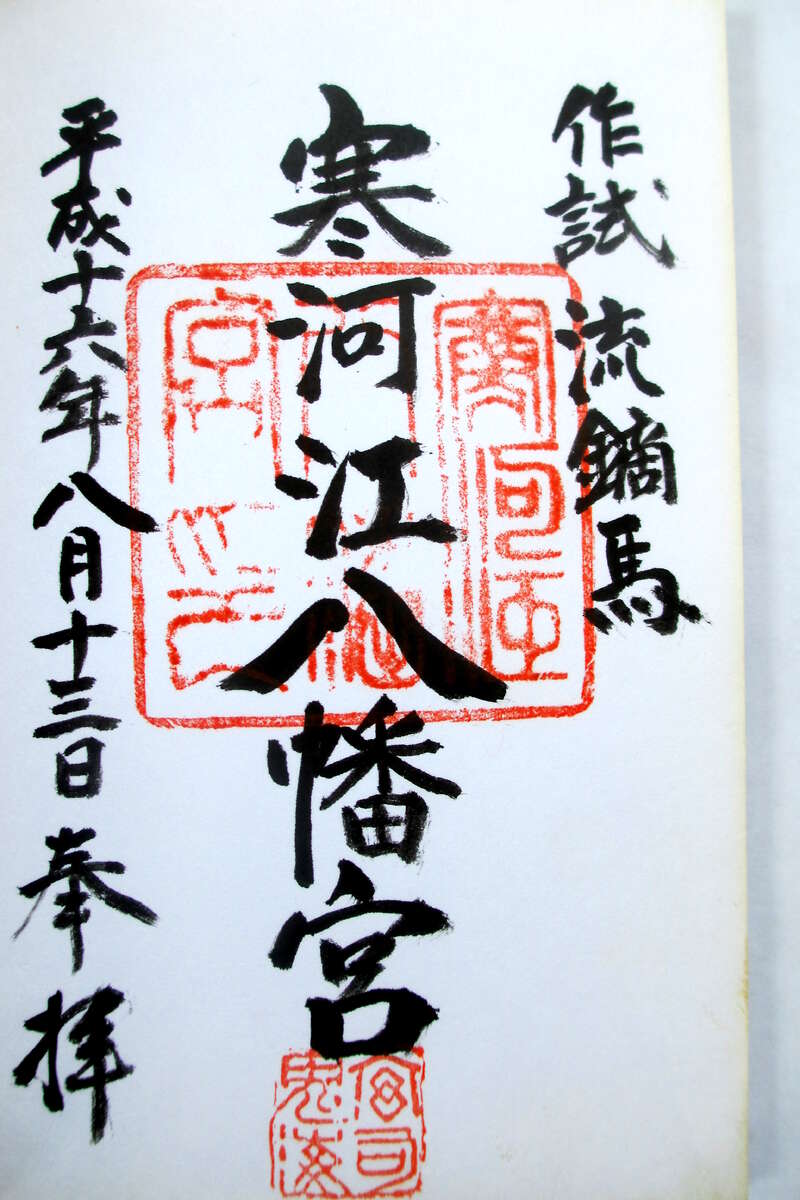 作試 流鏑馬
寒河江八幡宮
平成十六年八月十三日 奉拝